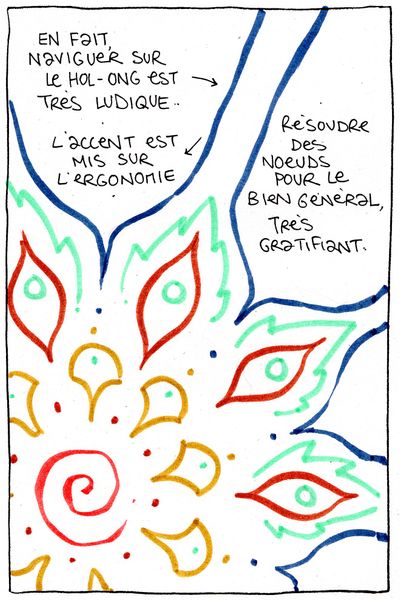 EN FAIT,
NAVIGUER SUR
LE HOL-ONG EST
TRÈS LUDIQUE..
L'ACCENT EST
MIS SUR
L'ERGONOMIE
RÉSOUDRE
DES
NOEUDS
POUR LE
BIEN GÉNÉRAL,
TRÈS
GRATIFIANT.